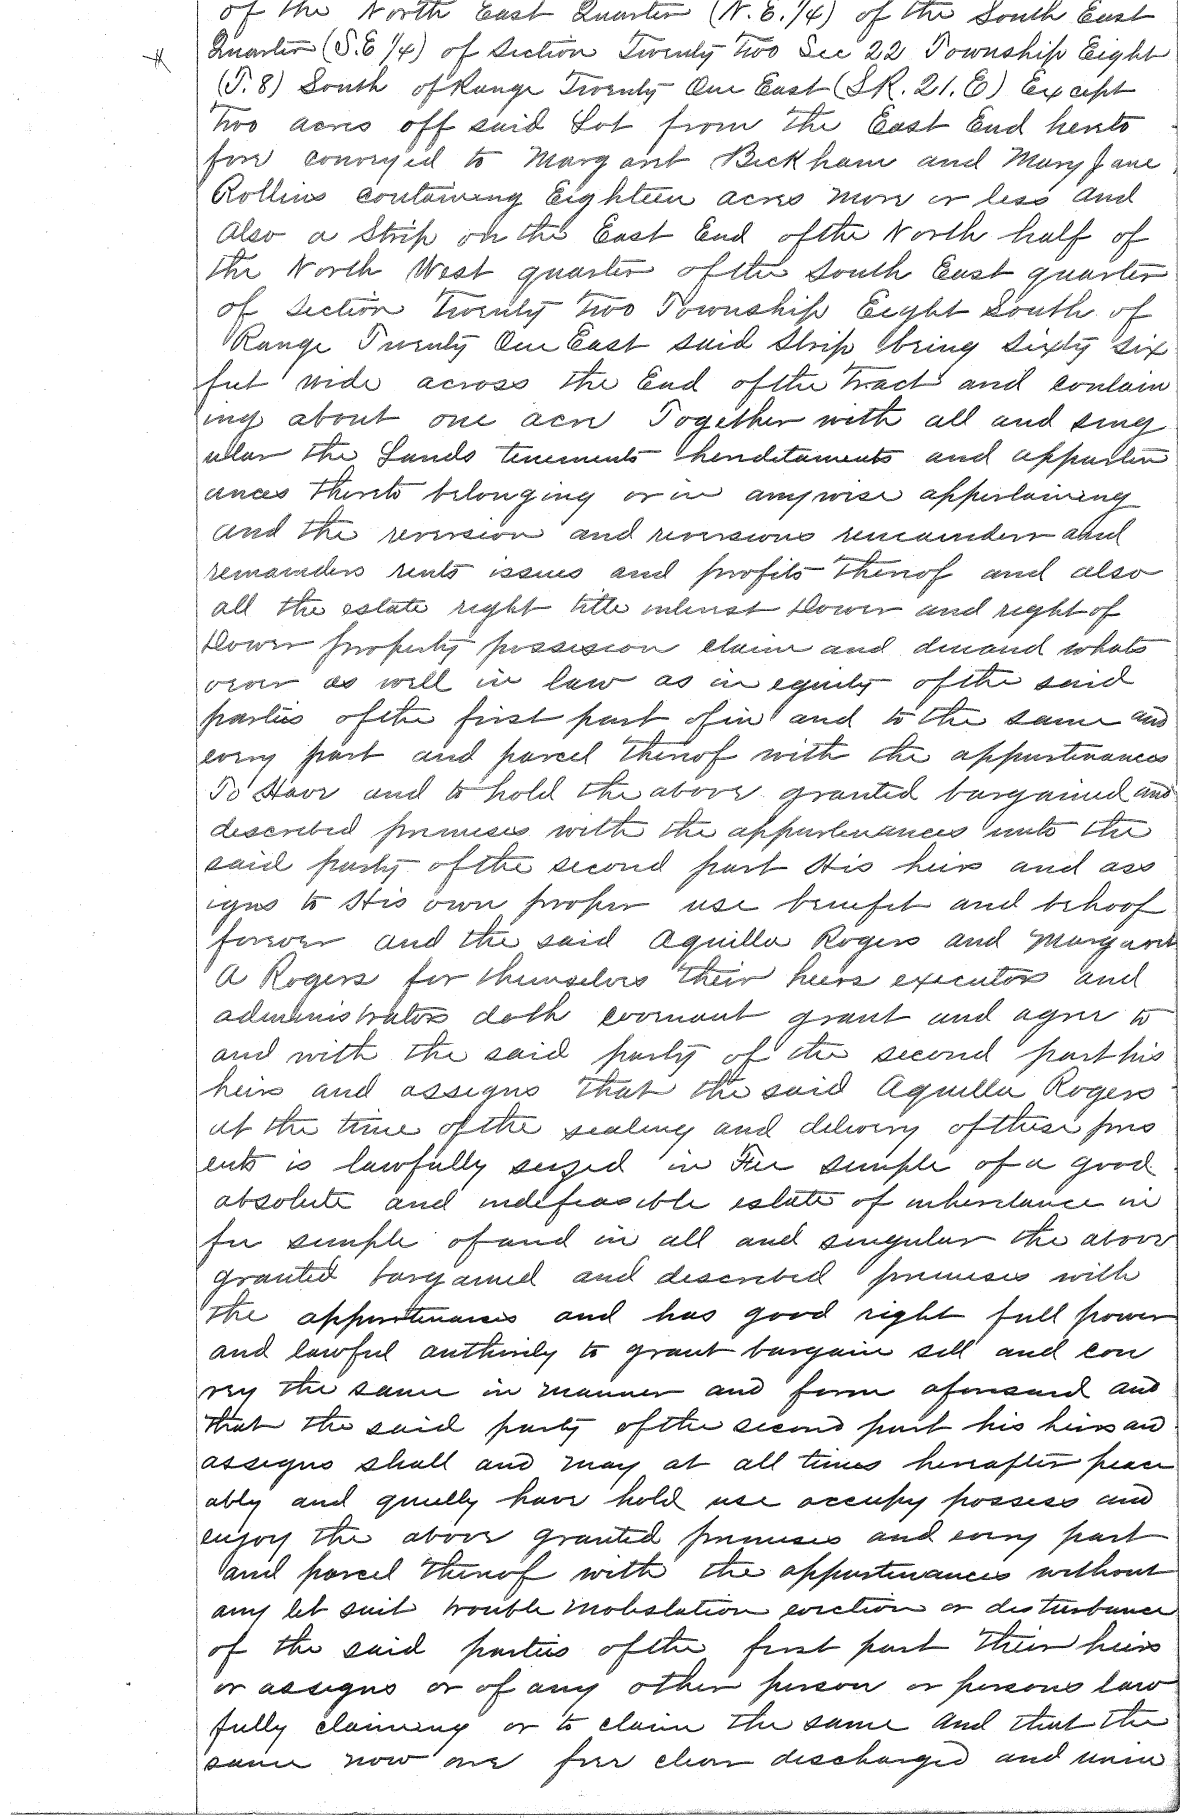 of the North East Quarter (N.E. 1/4) of the South East
Quarter (S.E 1/4) of Section Twenty Two Sec 22 Township Eight
(T. 8) South of Range Twenty One East (SR. 21. E) Except
Two acres off said Lot from the East End hereto
fore conveyed to Margaret Beckham and Mary Jane
Rollins containing Eighteen acres more or less and
also a Strip on the East End of the North half of
the North West quarter of the South East quarter
of Section Twenty Two Township Eight South of
Range Twenty One East said Strip being Sixty Six
feet wide across the End of the Tract and contain
ing about one acre Together with all and sing
ular the Lands tenements hereditaments and appurten
ances thereto belonging or in anywise appertaining
and the reversion and reversions remainder and
remainders rents issues and profits thereof and also
all the estate right title interest Dower and right of
Dower property possession claim and demand whats
oever as well in law as in equity of the said
parties of the first part of in and to the same and
every part and parcel thereof with the appurtenances
To Have and to hold the above granted bargained and
described premises with the appurtenances unto the
said party of the second part His heirs and ass
igns to His own proper use benefit and behoof
forever and the said Aquilla Rogers and Margaret
A Rogers for themselves their heirs executors and
administrators doth covenant grant and agree to
and with the said party of the second part his
heirs and assigns that the said Aquilla Rogers
at the time of the sealing and delivery of these pres
ents is lawfully seized in Fee simple of a good
absolute and indefeasible estate of inheritance in
fee simple of and in all and singular the above
granted bargained and described premises with
the appurtenances and has good right full power
and lawful authority to grant bargain sell and con
vey the same in manner and form aforesaid and
that the said party of the second part his heirs and
assigns shall and may at all times hereafter peace
ably and quietly have hold use occupy possess and
enjoy the above granted premises and every part
and parcel thereof with the appurtenances without
any let suit trouble molestation eviction or disturbance
of the said parties of the first part their heirs
or assigns or of any other person or persons law
fully claiming or to claim the same and that the
same now are free clear discharged and unin